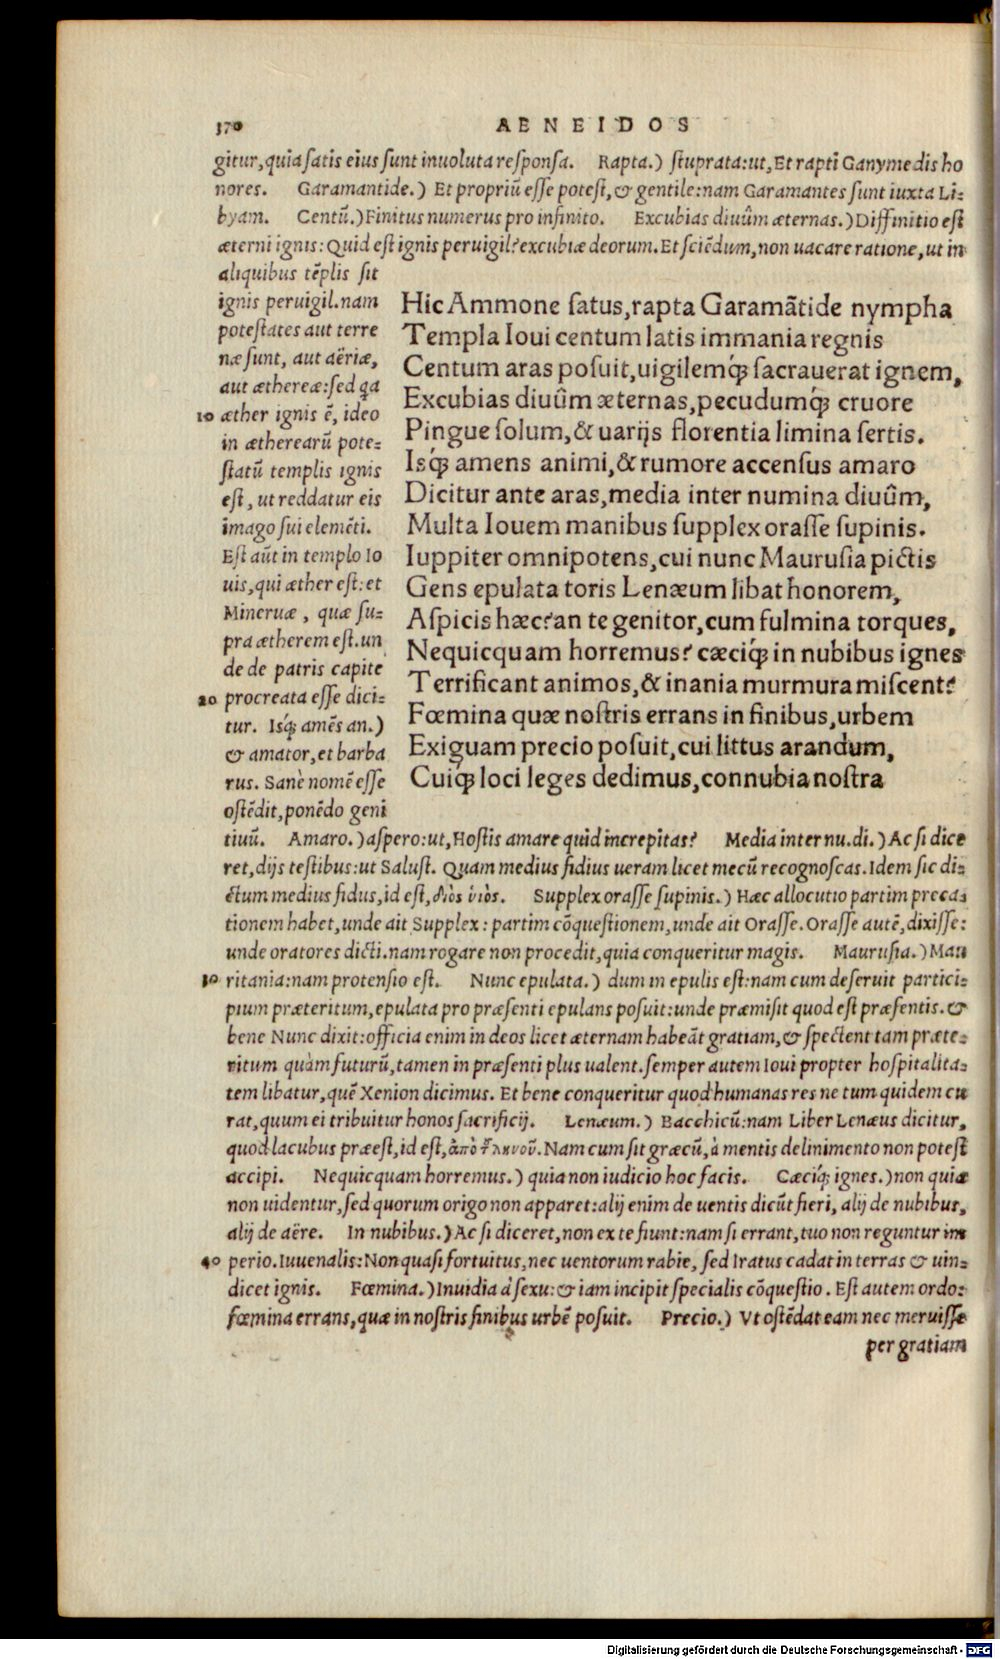 370 AENEIDOS
gitur,quia satis eius sunt inuoluta responsa. Rapta.) stuprata:ut,Et rapti Ganymedis ho
nores. Garamantide.) Et propriū esse potest,& gentile:nam Garamantes sunt iuxta Li-
byam. Centū.)Finitus numerus pro infinito. Excubias diuûm æternas.)Diffinitio est
æterni ignis: Quid est ignis peruigil?excubiæ deorum.Et sciēdum,non uacare ratione,ut in
aliquibus tēplis sit
ignis peruigil.nam
potestates aut terre
næ sunt, aut aëriæ,
aut æthereæ:sed qa
10 æther ignis ē, ideo
in ætherearū pote-
statū templis ignis
est, ut reddatur eis
imago sui elemēti.
Est aūt in templo Io
uis,qui æther est:et
Mineruæ, quæ su-
pra ætherem est.un
de de patris capite
20 procreata esse dici-
tur. Isq; amēs an.)
& amator,et barba
rus. Sanè nomē esse
ostēdit,ponēdo geni
Hic Ammone satus,rapta Garamātide nympha
Templa Ioui centum latis immania regnis
Centum aras posuit,uigilemq́; sacrauerat ignem,
Excubias diuûm æternas,pecudumq́; cruore
Pingue solum,& uarijs florentia limina sertis.
Isq́; amens animi,& rumore accensus amaro
Dicitur ante aras,media inter numina diuûm,
Multa Iouem manibus supplex orasse supinis.
Iuppiter omnipotens,cui nunc Maurusia pictis
Gens epulata toris Lenæum libat honorem,
Aspicis hæc?an te genitor,cum fulmina torques,
Nequicquam horremus? cæciq́; in nubibus ignes
Terrificant animos,& inania murmura miscent?
Fœmina quæ nostris errans in finibus,urbem
Exiguam precio posuit,cui littus arandum,
Cuiq́; loci leges dedimus,connubia nostra
tiuū. Amaro.)aspero:ut,Hostis amare quid increpitas? Media inter nu.di.)Ac si dice
ret,dijs testibus:ut Salust. Quam medius fidius ueram licet mecū recognoscas.Idem sic di-
ctum medius fidus,id est,διὸς ὑιὸς. Supplex orasse supinis.) Hæc allocutio partim preca-
tionem habet,unde ait Supplex: partim cōquestionem,unde ait Orasse.Orasse autē,dixisse:
unde oratores dicti.nam rogare non procedit,quia conqueritur magis. Maurusia.)Mau
30 ritania:nam protensio est. Nunc epulata.) dum in epulis est:nam cum deseruit partici-
pium præteritum,epulata pro præsenti epulans posuit:unde præmisit quod est præsentis.&
bene Nunc dixit:officia enim in deos licet æternam habeāt gratiam,& spectent tam præte-
ritum quàm futurū,tamen in præsenti plus ualent.semper autem Ioui propter hospitalita-
tem libatur,quē Xenion dicimus. Et bene conqueritur quod humanas res ne tum quidem cu
rat,quum ei tribuitur honos sacrificij. Lenæum.) Bacchicū:nam Liber Lenæus dicitur,
quod lacubus præest,id est,ἀπὸ τ͂ ληνοῦ.Nam cum sit græcū,à mentis delinimento non potest
accipi. Nequicquam horremus.) quia non iudicio hoc facis. Cæciq́; ignes.)non quia
non uidentur,sed quorum origo non apparet:alij enim de uentis dicūt fieri, alij de nubibus,
alij de aëre. In nubibus.)Ac si diceret,non ex te fiunt:nam si errant,tuo non reguntur im
40 perio.Iuuenalis:Non quasi fortuitus,nec uentorum rabie, sed Iratus cadat in terras & uin-
dicet ignis. Fœmina.)Inuidia à sexu:& iam incipit specialis cōquestio. Est autem ordo:
fœmina errans,quæ in nostris finibus urbē posuit. Precio.) Vt ostēdat eam nec meruisse
per gratiam
Digitalisierung gefördert durch die Deutsche Forschungsgemeinschaft - DFG